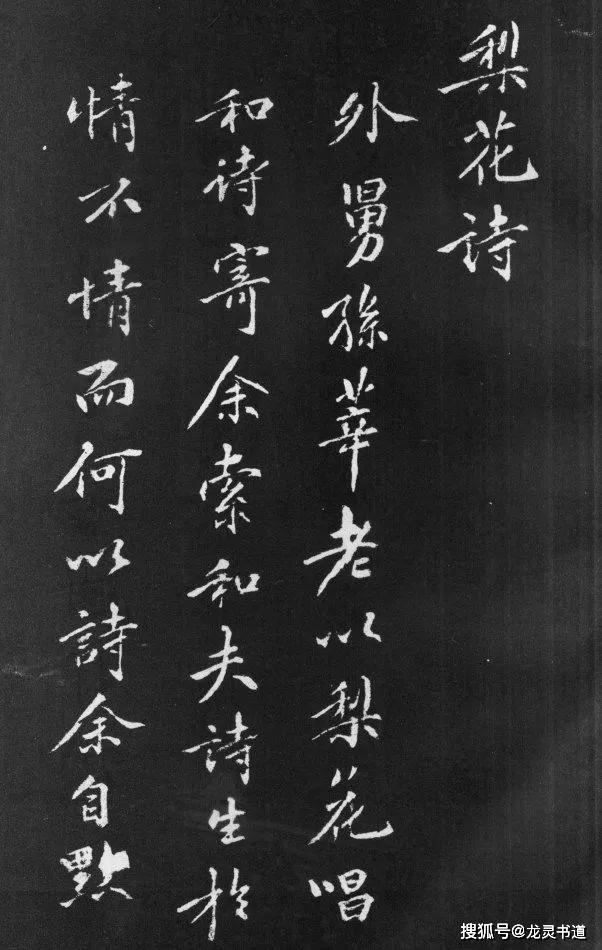 梨花詩
外舅孫莘老以梨花唱
和诗寄余索和夫詩生於
情不情而何以詩余自點
搜狐号@龙灵书道